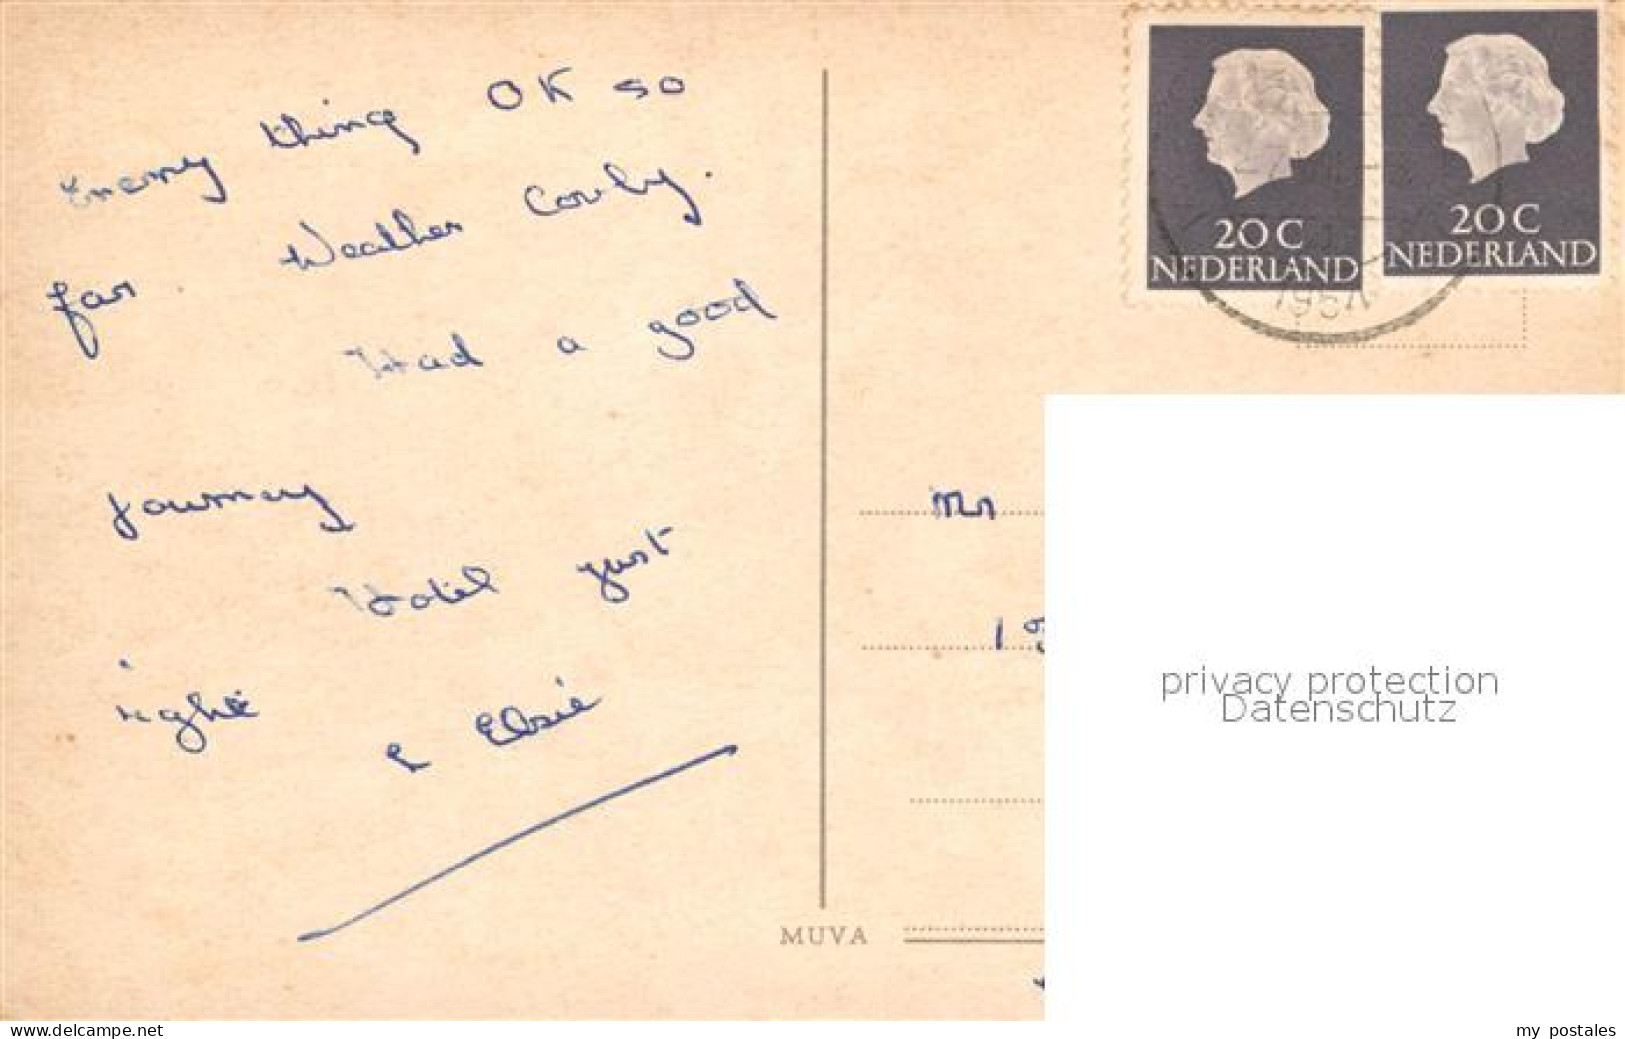 Every thing OK so
far Weather Couly.
Had a good
Journey
Hotel just
right
E Elsie
20 C
NEDERLAND
20 C
NEDERLAND
195
Mr
1
privacy protection
Datenschutz
MUVA
www.delcampe.net
my postales